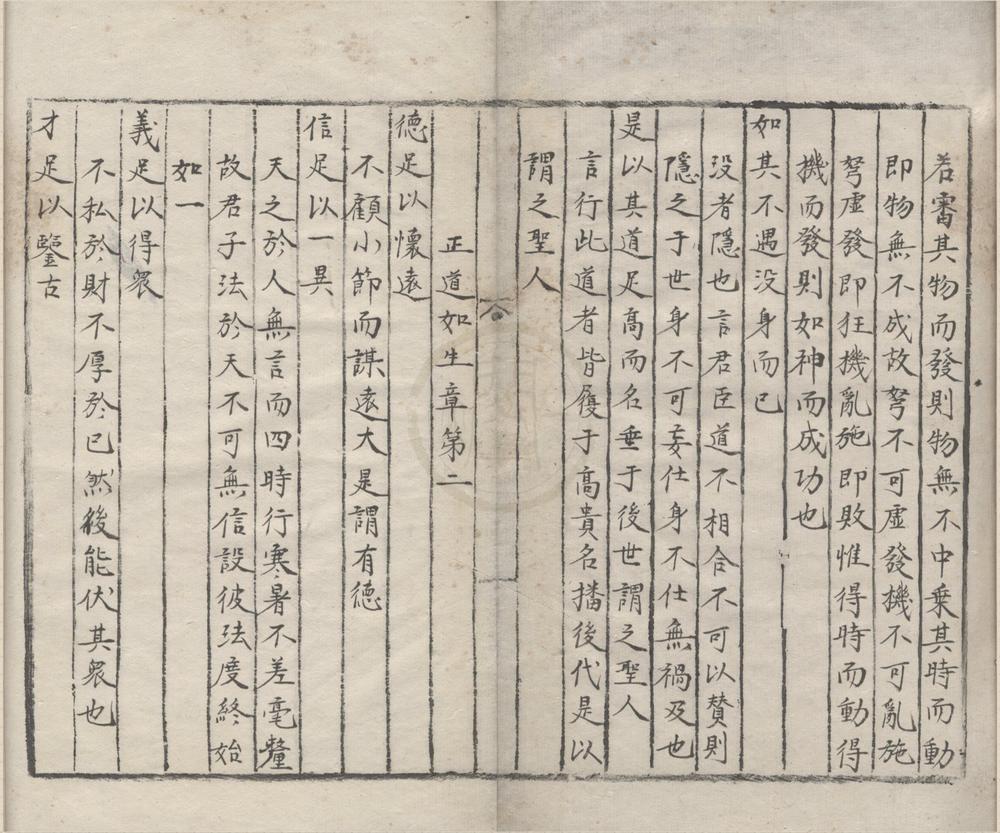 若審其物而發則物無不中乗其時而動
即物無不成故弩不可虛發機不可亂施
弩虛發即狂機亂施即敗惟得時而動得
機而發則如神而成功也
如其不遇没身而已
没者隱也言君臣道不相合不可以賛則
隱之于世身不可妄仕身不仕無禍及也
是以其道足高而名垂于後世謂之聖人
言行此道者皆履于高貴名播後代是以
謂之聖人
正道如生章第二
德足以懷遠
不顧小節而謀遠大是謂有德
信足以一異
天之於人無言而四時行寒暑不差毫釐
故君子法於天不可無信設彼法度終始
如一
義足以得衆
不私於財不厚於已然後能伏其衆也
才足以鑒古